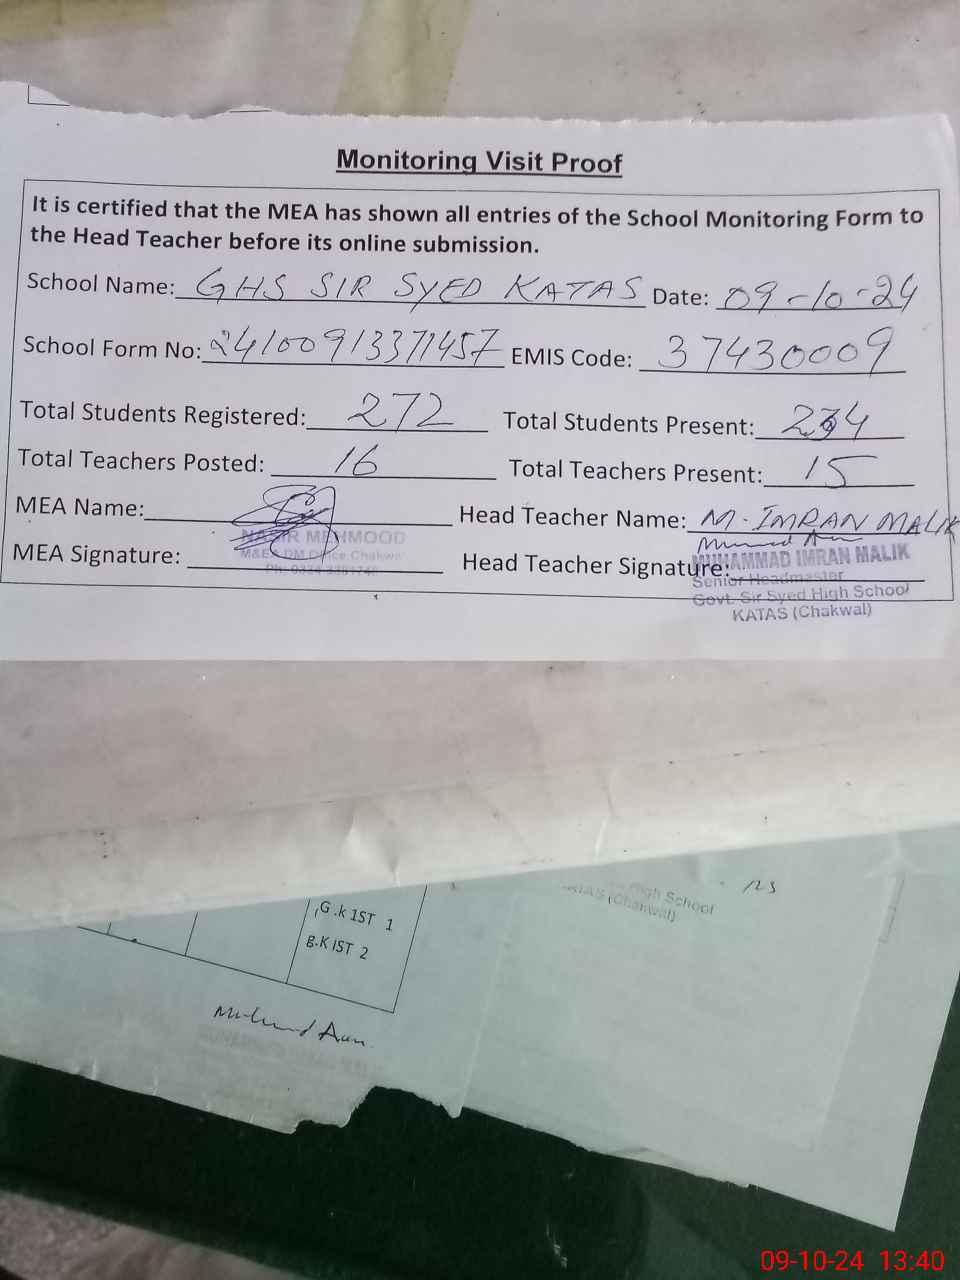 Monitoring Visit Proof
It is certified that the MEA has shown all entries of the School Monitoring Form to
the Head Teacher before its online submission.
School Name: GHS SIR SYED KATAS Date: 09-10-24
School Form No: 2410091337 1457 EMIS Code: 37430009
Total Students Registered: 272 Total Students Present: 234
Total Teachers Posted: 16 Total Teachers Present: 15
MEA Name: Head Teacher Name: M. IMRAN MALIK
NASIR MEHMOOD
M&E DM Office Chakwal
MEA Signature: Head Teacher Signature:
MUHAMMAD IMRAN MALIK
Senior Headmaster
Govt. Sir Syed High School
KATAS (Chakwal)
G.k 1ST 1
g.K IST 2
High School
KATAS (Chakwal)
09-10-24 13:40